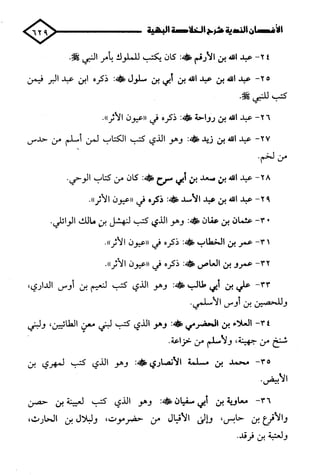 الأفنان الندية شرح الخلاصة البهية
٦٢٩
٢٤- عبد الله بن الأرقم ﷺ: كان يكتب للملوك بأمر النبي ﷺ.
٢٥- عبد الله بن عبد الله بن أبي بن سلول ﷺ: ذكره ابن عبد البر فيمن
كتب للنبي ﷺ.
٢٦- عبد الله بن رواحة ﷺ: ذكره في «عيون الأثر».
٢٧- عبد الله بن زيد ﷺ: وهو الذي كتب الكتاب لمن أسلم من حدس
من لخم.
٢٨- عبد الله بن سعد بن أبي سرح ﷺ: كان من كتاب الوحي.
٢٩- عبد الله بن عبد الأسد ﷺ: ذكره في «عيون الأثر».
٣٠- عثمان بن عفان ﷺ: وهو الذي كتب لنهشل بن مالك الوائلي.
٣١- عمر بن الخطاب ﷺ: ذكره في «عيون الأثر».
٣٢- عمرو بن العاص ﷺ: ذكره في «عيون الأثر».
٣٣- علي بن أبي طالب ﷺ: وهو الذي كتب لنعيم بن أوس الداري،
وللحصين بن أوس الأسلمي.
٣٤- العلاء بن الحضرمي ﷺ: وهو الذي كتب لبني معن الطائيين، ولبني
شنخ من جهينة، ولأسلم من خزاعة.
٣٥- محمد بن مسلمة الأنصاري ﷺ: وهو الذي كتب لمهري بن
الأبيض.
٣٦- معاوية بن أبي سفيان ﷺ: وهو الذي كتب لعيينة بن حصن
والأقرع بن حابس، وإلى الأقيال من حضرموت، ولبلال بن الحارث،
ولعتبة بن فرقد.